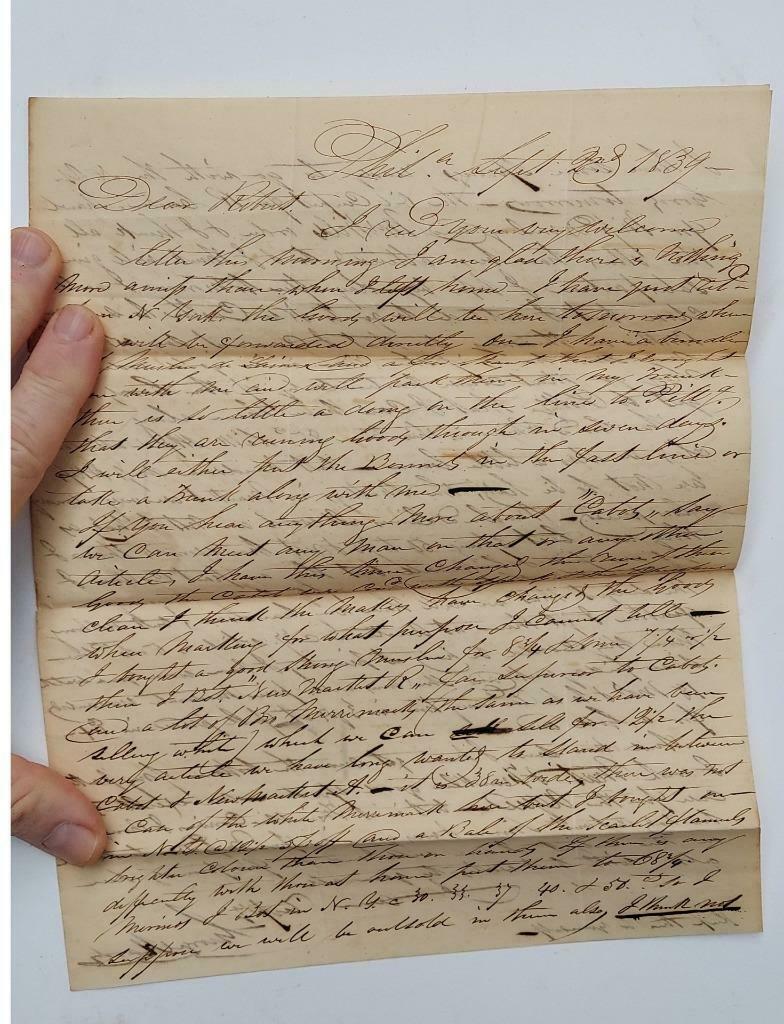 Phil.a Sept. 2nd 1839 –
Dear Robert.
I recd your very welcome
letter this morning I am glad there is nothing
more amiss than when I left home. I have just
N. York the Goods will be here tomorrow when
will be forwarded directly on – I have a bundle
Muslin de Laines and a that I brought
on with me and will pack them in my Trunk –
there is so little a doing on the line to Pittsg.
that they are running Goods through in seven days.
I will either put the Bonnets in the fast line or
take a Trunk along with me —
If you hear anything more about "Cabots" say
we Can meet any Man on that or any other
Article, I have this time changed the
Goods the Cabot
clear I think the Makers have changed the Goods
when Marking for what purpose I Cannot tell —
I bought a good Strong Muslin for 8 3/4 & some 7 1/4 & 1/2
then I Bot. "New Market R" far Superior to Cabot.
and a lot of Bro Merrimack (the same as we have been
selling white) which we Can sell for 12 1/2 the
very article we have long wanted to stand in between
Cabot & New Market A. – it is 38 in wide, there was not
a Case of the White Merrimack here but I bought one
in N.Y. @ 12 1/2 off and a Bale of the Scarlet flannels
brighter Colour than those on hand if there is any
difficulty with those at home put them to 68 3/4.
Merinos I Bot in N.Y. @ 30. 33. 37 40. & 50. so I
suppose we will be outsold in them also I think not